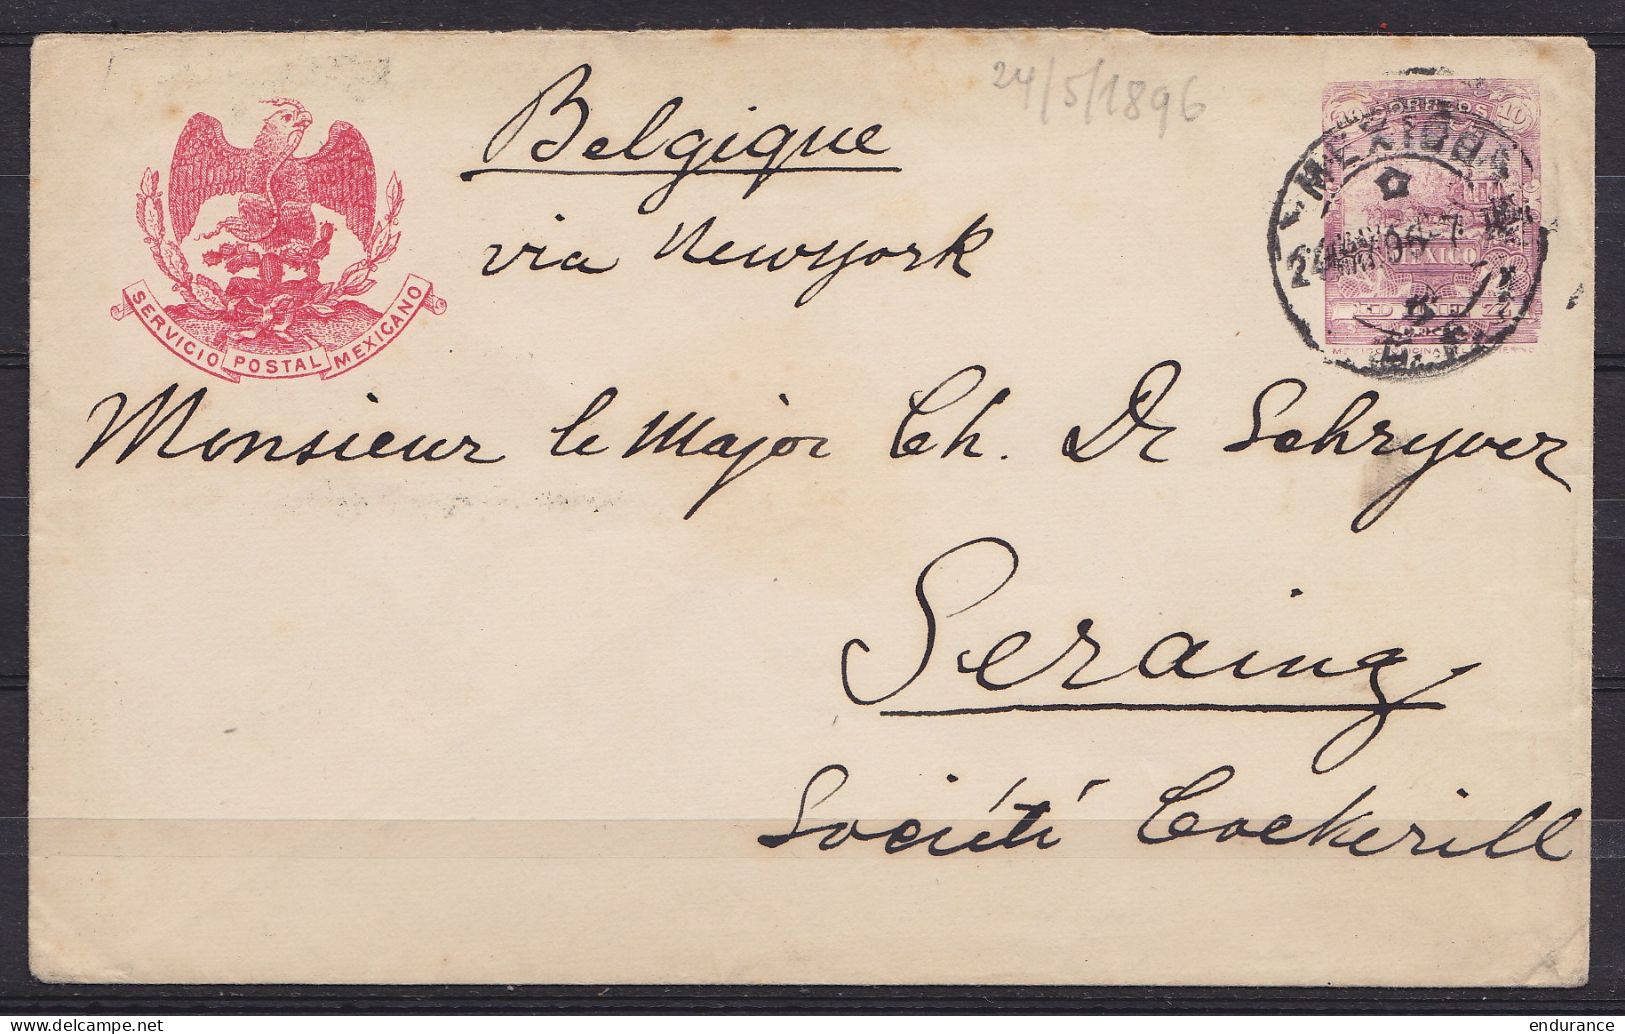 24/5/1896
Belgique
via Newyork
SERVICIO POSTAL MEXICANO
10
MEXICO
Monsieur le Major Ch. De Schryver
Seraing
Société Cockerill
delcampe.net
endurance